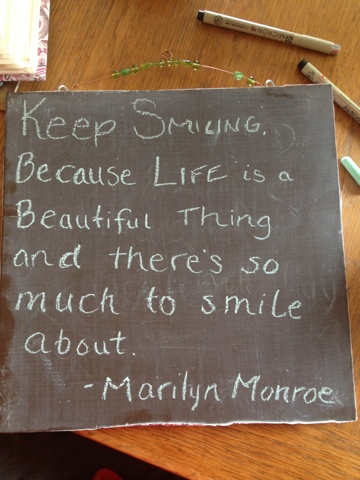 Keep Smiling.
Because Life is a
Beautiful Thing
and there's so
much to smile
about.
-Marilyn Monroe
MICRON